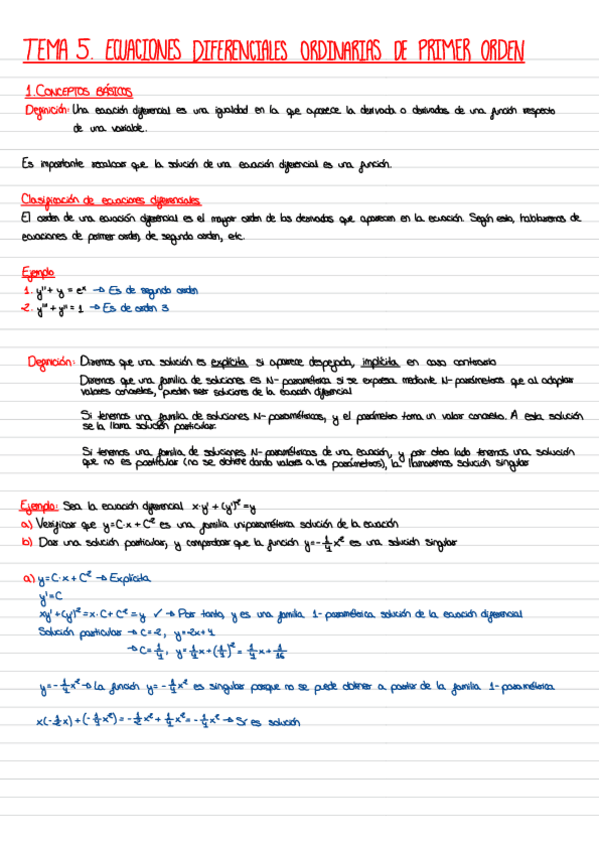 TEMA 5. ECUACIONES DIFERENCIALES ORDINARIAS DE PRIMER ORDEN
1. CONCEPTOS BÁSICOS
Definición: Una ecuación diferencial es una igualdad en la que aparece la derivada o derivadas de una función respecto
de una variable.
Es importante recalcar que la solución de una ecuación diferencial es una función.
Clasificación de ecuaciones diferenciales
El orden de una ecuación diferencial es el mayor orden de las derivadas que aparecen en la ecuación. Según esto, hablaremos de
ecuaciones de primer orden, de segundo orden, etc.
Ejemplo
1. y'' + y = eˣ → Es de segundo orden
2. y''' + y'' = 1 → Es de orden 3
Definición: Diremos que una solución es explícita si aparece despejada, implícita en caso contrario
Diremos que una familia de soluciones es N-paramétrica si se expresa mediante N-parámetros que al adoptar
valores concretos, pueden ser soluciones de la ecuación diferencial
Si tenemos una familia de soluciones N-paramétricas, y el parámetro toma un valor concreto. A esta solución
se la llama solución particular.
Si tenemos una familia de soluciones N-paramétricas de una ecuación, y por otro lado tenemos una solución
que no es particular (no se obtiene dando valores a los parámetros), la llamaremos solución singular
Ejemplo: Sea la ecuación diferencial x·y' + (y')² = y
a) Verificar que y = C·x + C² es una familia uniparamétrica solución de la ecuación
b) Dar una solución particular, y comprobar que la función y = -1/4 x² es una solución singular
a) y = C·x + C² → Explícita
y' = C
xy' + (y')² = x·C + C² = y ✓ → Por tanto, y es una familia 1-paramétrica solución de la ecuación diferencial
Solución particular → C = -2, y = -2x + 4
→ C = 1/4, y = 1/4 x + (1/4)² = 1/4 x + 1/16
y = -1/4 x² → La función y = -1/4 x² es singular porque no se puede obtener a partir de la familia 1-paramétrica
x(-1/2 x) + (-1/4 x²) = -1/2 x² + 1/4 x² = -1/4 x² → Sí es solución